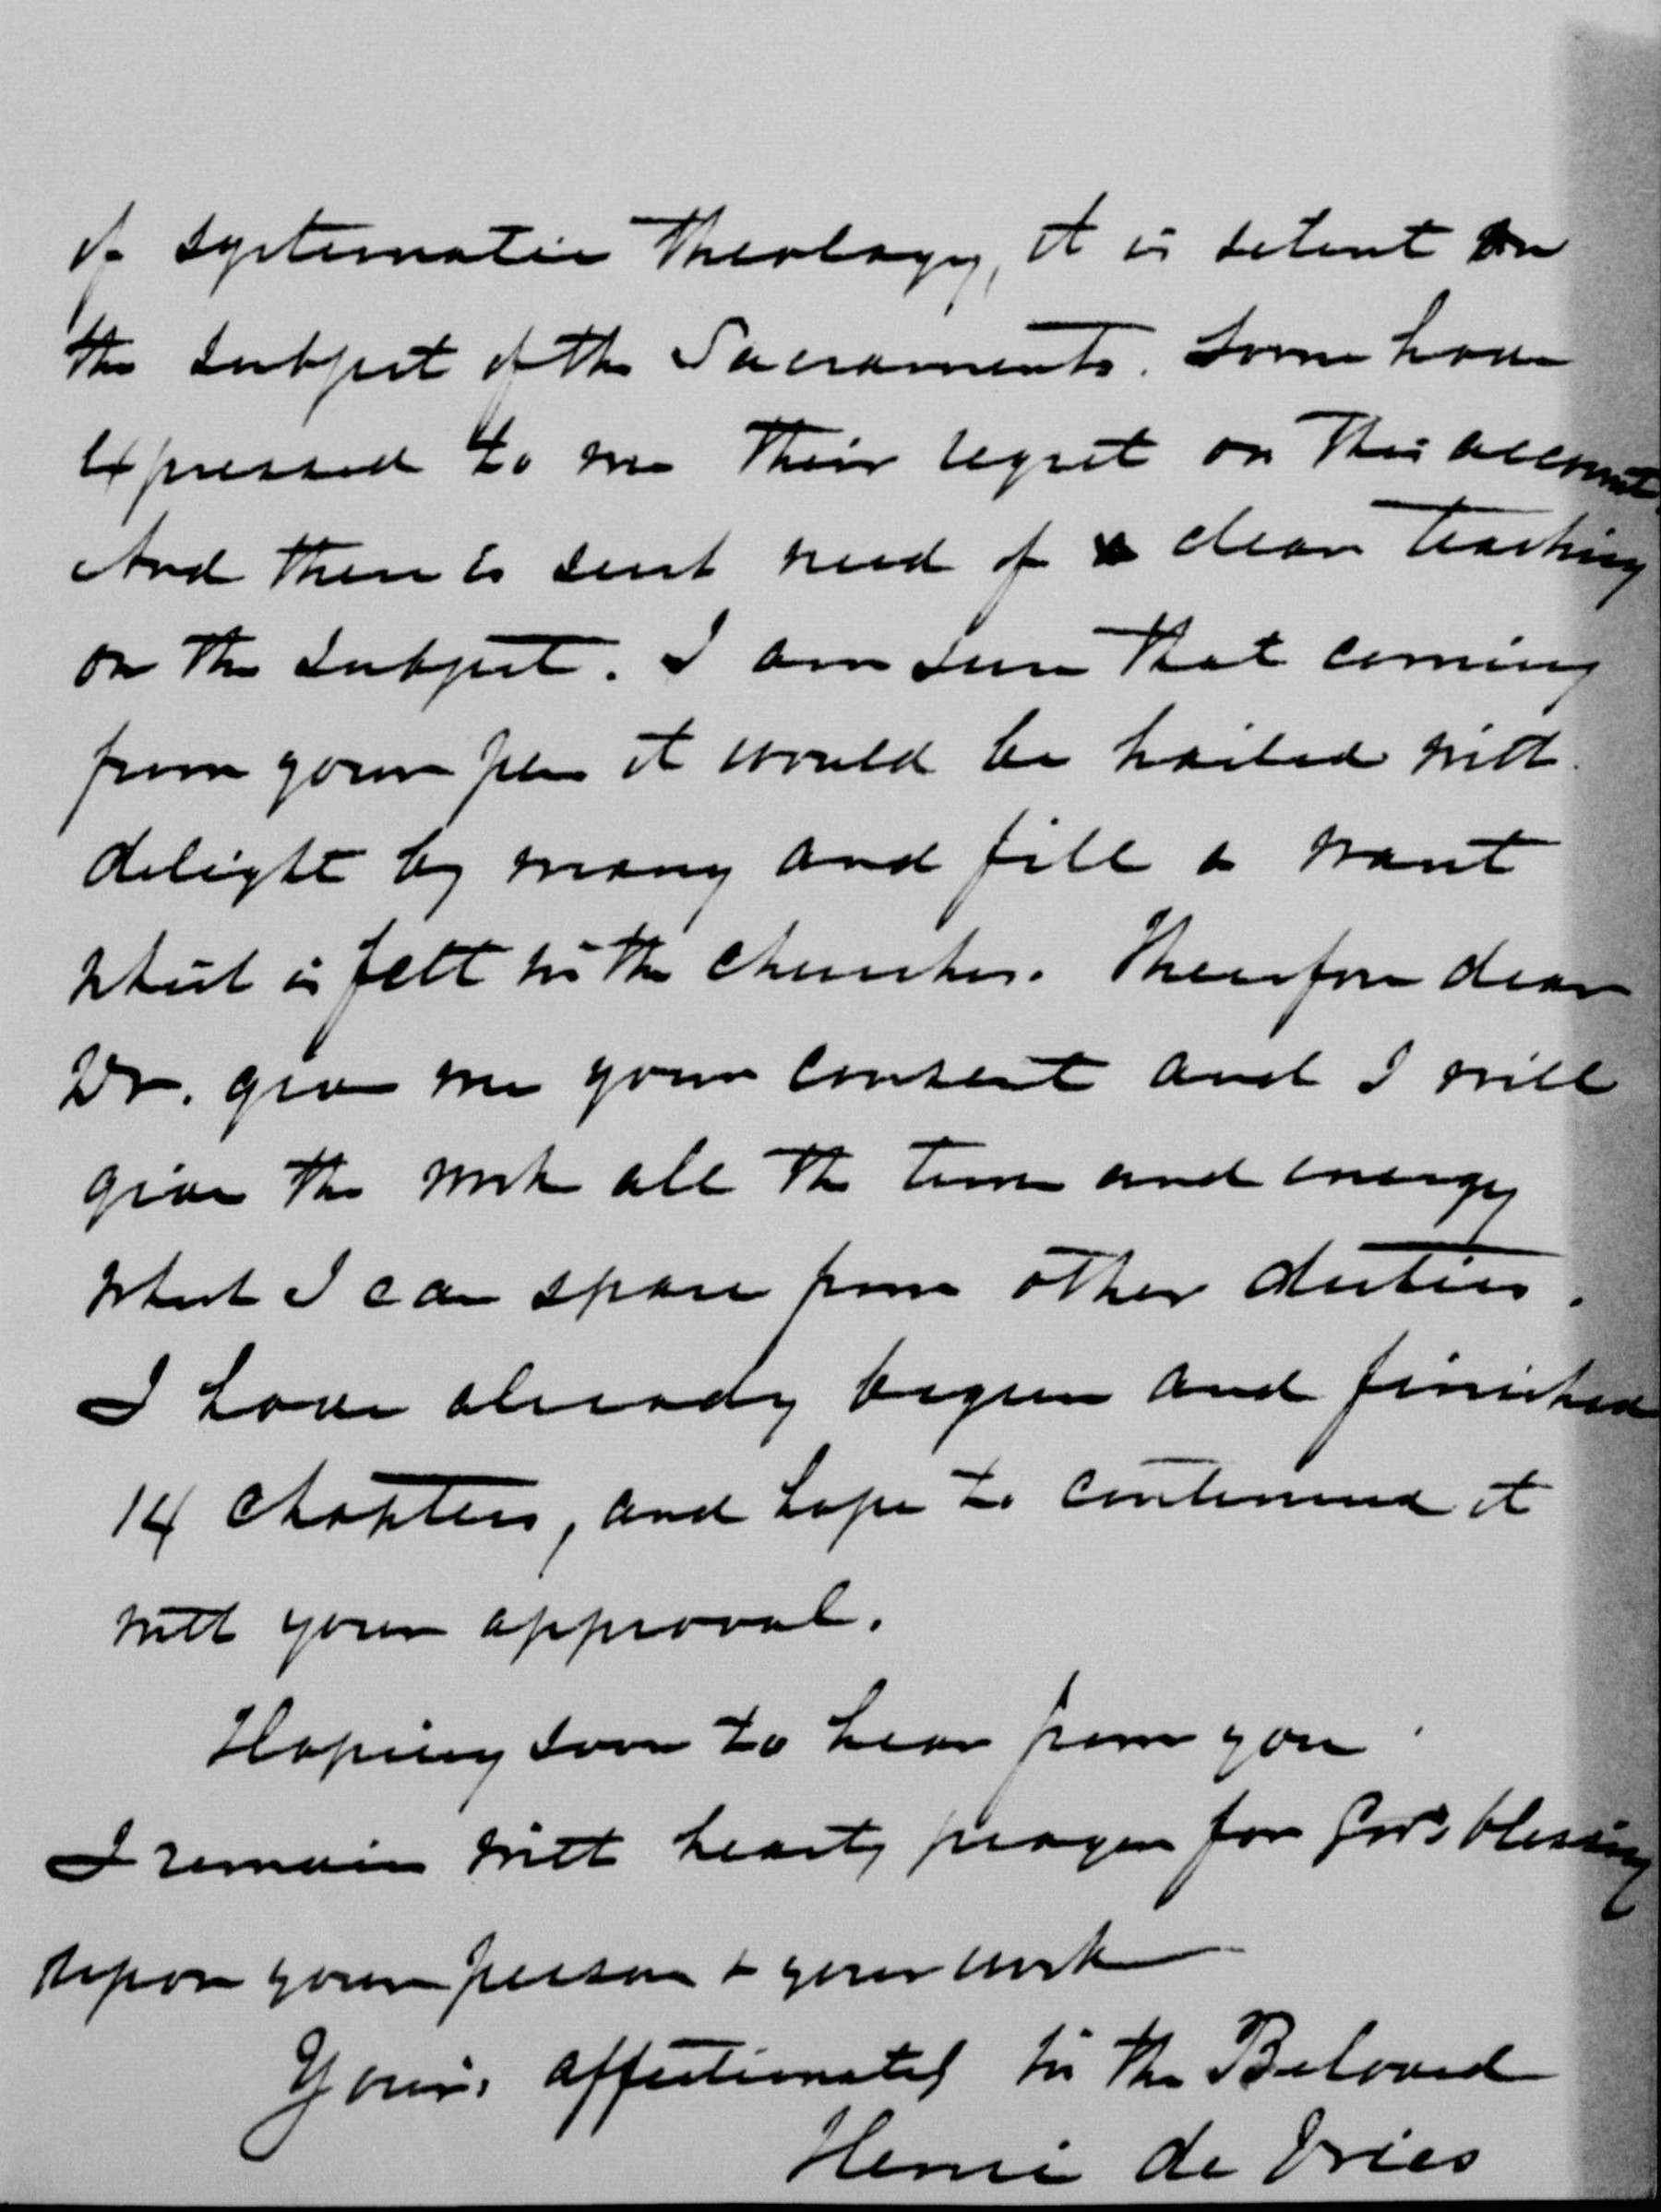 of systematic Theology, it is silent on
the subject of the Sacraments. Some have
expressed to me their regret on this account.
And there is such need of clear teaching
on the subject. I am sure that coming
from your pen it would be hailed with
delight by many and fill a want
which is felt in the churches. Therefore dear
Dr. give me your consent and I will
give the work all the time and energy
which I can spare from other duties.
I have already begun and finished
14 chapters, and hope to continue it
with your approval.
Hoping soon to hear from you
I remain with hearty prayer for God's blessing
upon your person + your work
Yours affectionately in the Beloved
Henri de Vries